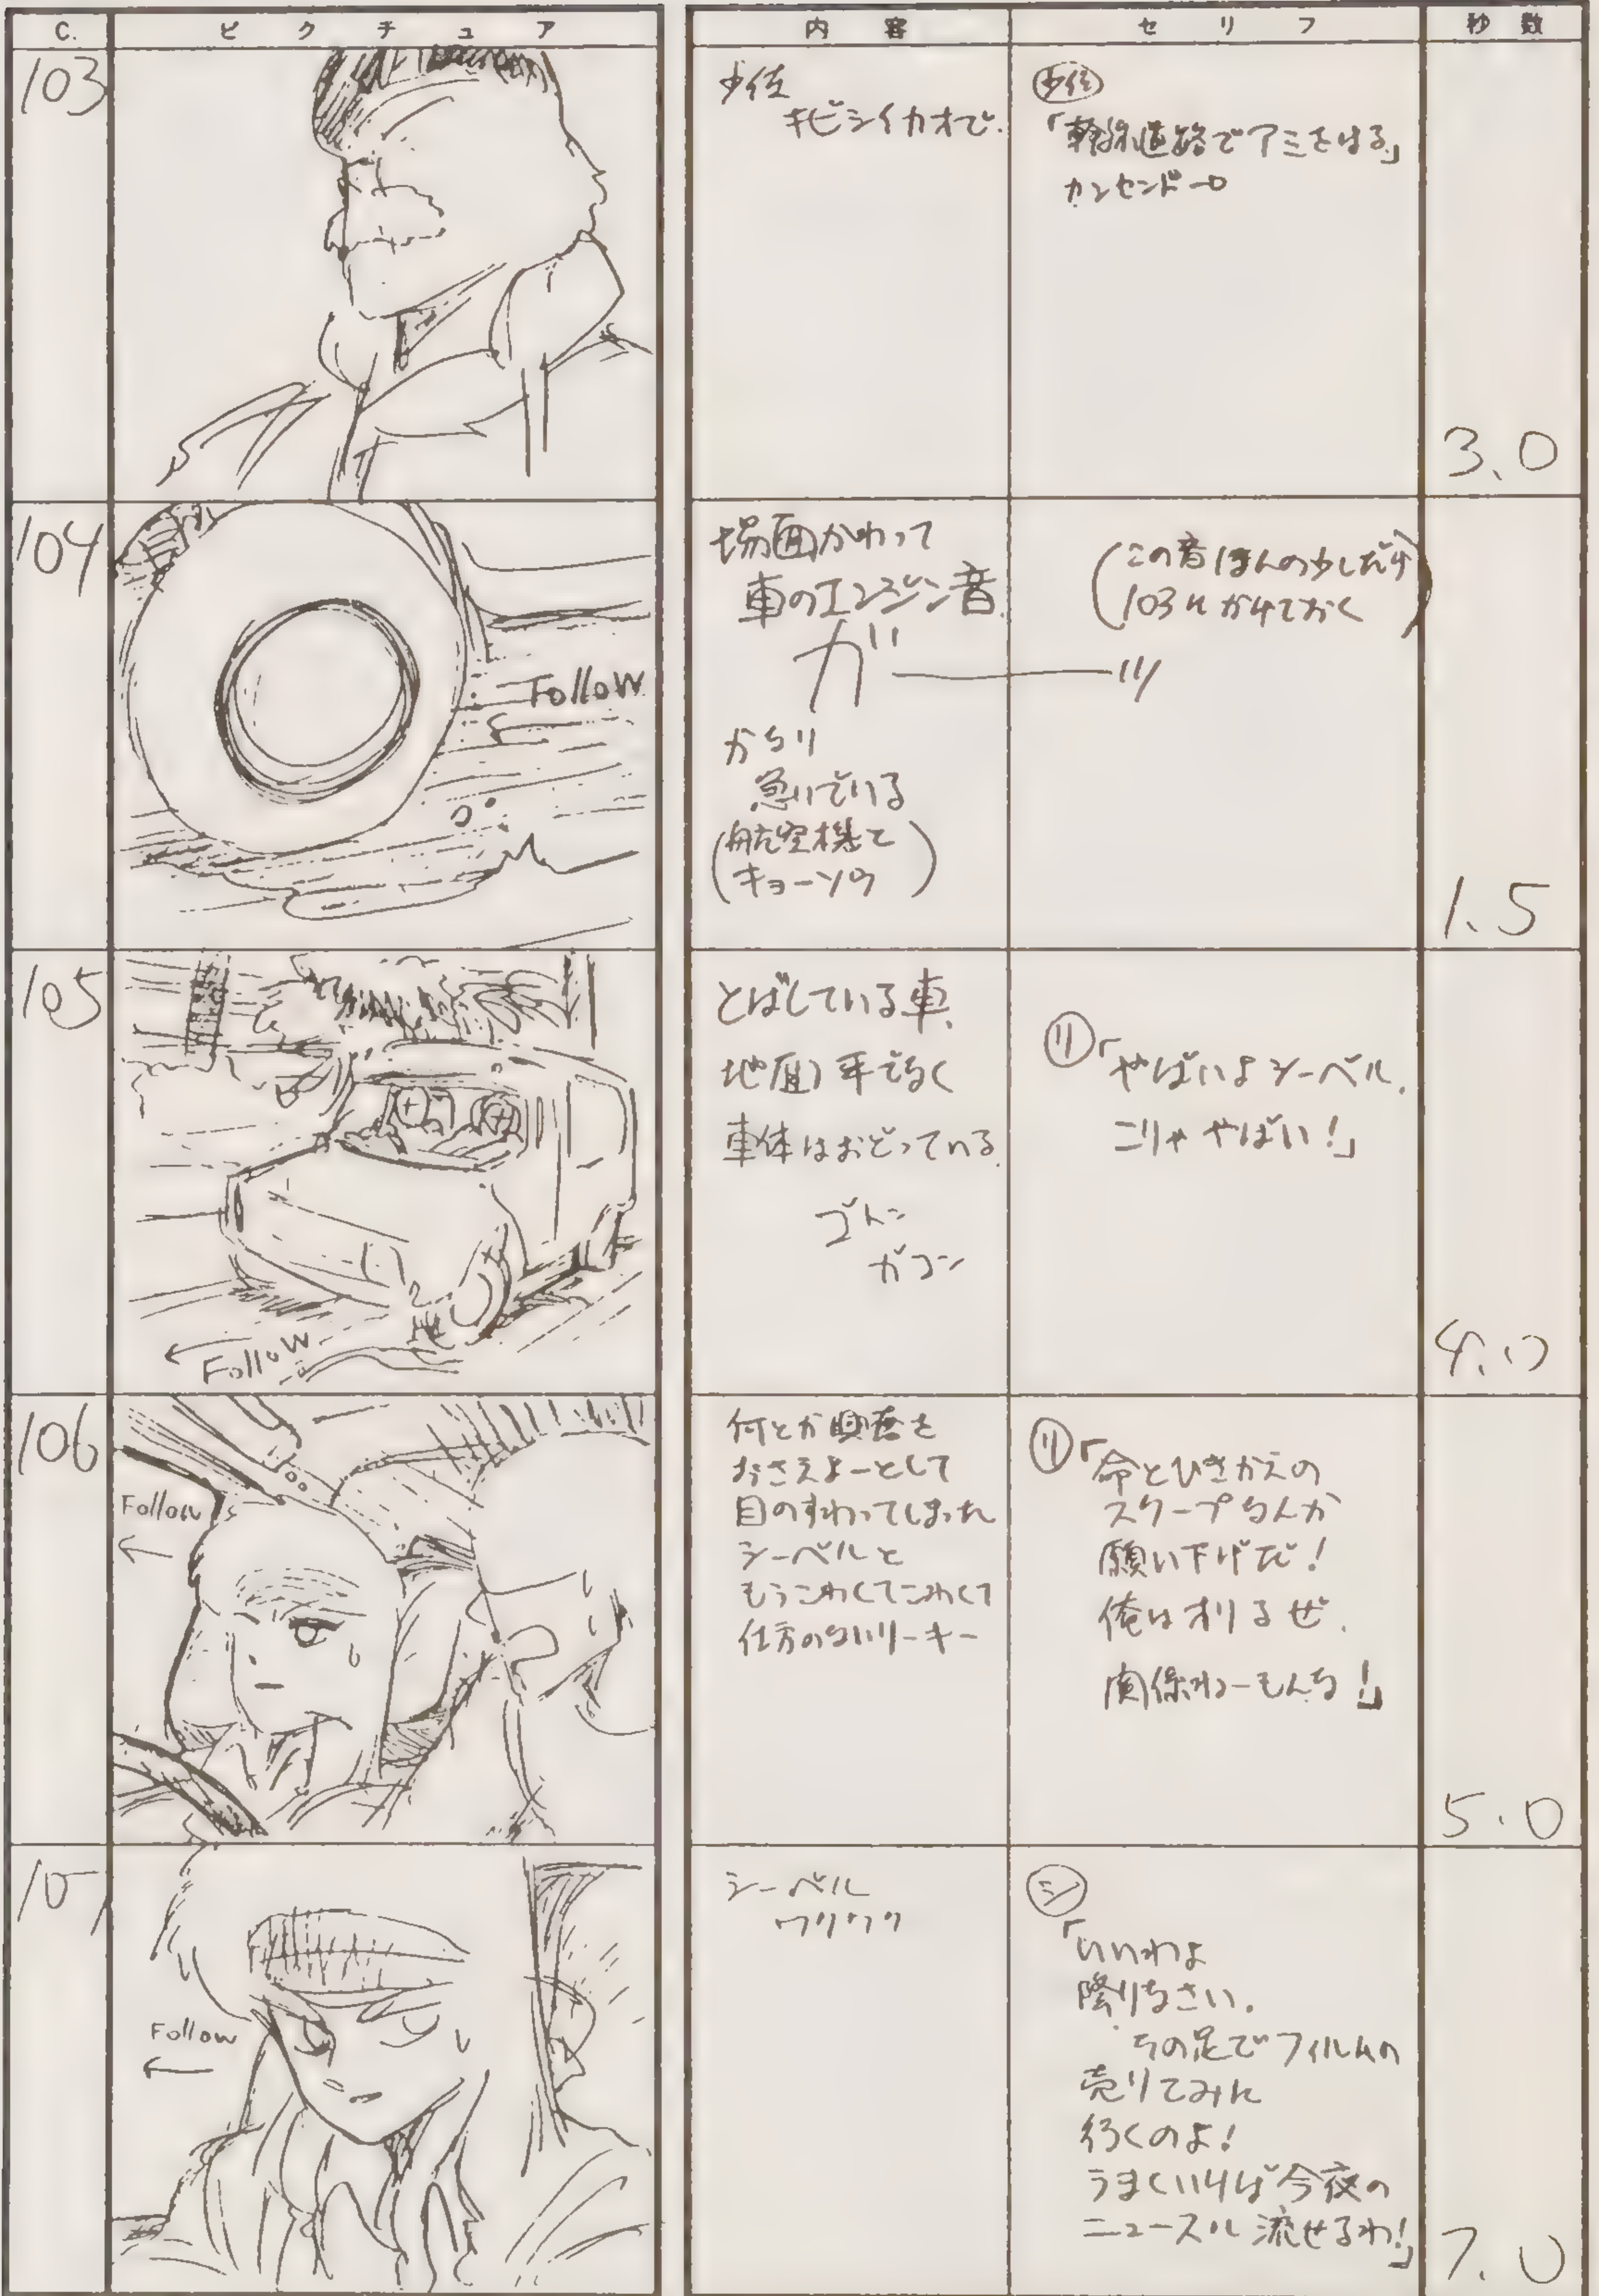 C. ピクチュア 内容 セリフ 秒数
103
少佐
キビシイカオで.
少佐
「幹線道路でアミをはる」
カンセンドーロ
3.0
104
Follow
場面かわって
車のエンジン音
ガ――ッ
かなり
急いでいる
(航空機と
キョーソウ)
(この音ほんの少しだけ
103にかけておく)
1.5
105
Follow
とばしている車.
地面)平でなく
車体はおどっている.
ゴトン
ガコン
リ「やばいよシーベル.
こりゃやばい!」
4.0
106
Follow
何とか興奮を
おさえよーとして
目のすわってしまった
シーベルと
もうこわくてこわくて
仕方のないリーキー
リ「命とひきかえの
スクープなんか
願い下げだ!
俺はオリるぜ.
関係ねーもんな!」
5.0
107
Follow
シーベル
ワクワク
シ
「いいわよ
降りなさい.
その足でフィルムの
売りこみに
行くのよ!
うまくいけば今夜の
ニュースに流せるわ!」
7.0